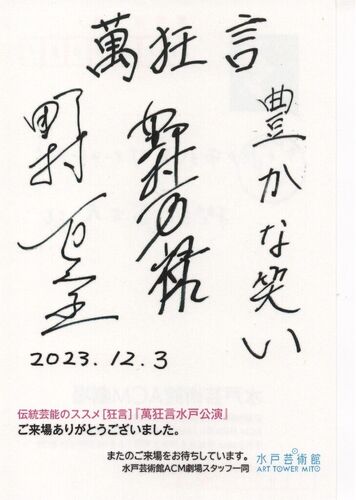 萬狂言
豊かな笑い
野村万禄
野村
2023.12.3
伝統芸能のススメ[狂言]『萬狂言水戸公演』
ご来場ありがとうございました。
またのご来場をお待ちしています。
水戸芸術館ACM劇場スタッフ一同
水戸芸術館
ART TOWER MITO